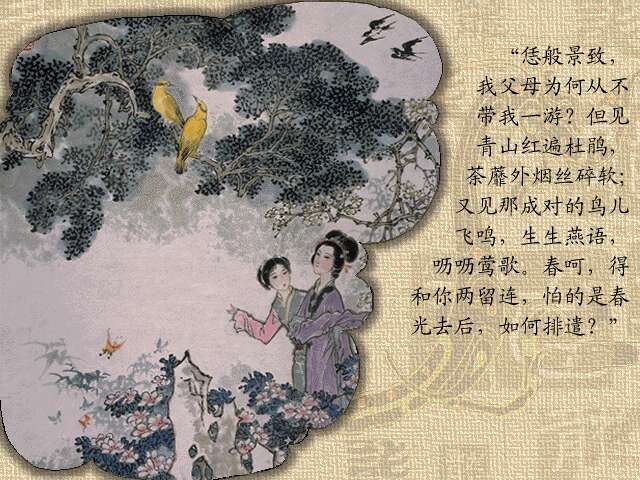 “恁般景致，
我父母为何从不
带我一游？但见
青山红遍杜鹃，
荼蘼外烟丝碎软；
又见那成对的鸟儿
飞鸣，生生燕语，
呖呖莺歌。春呵，得
和你两留连，怕的是春
光去后，如何排遣？”